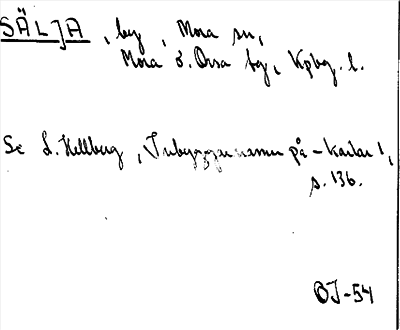 SÄLJA, by, Mora sn,
Mora o. Orsa tg, Kpbg. l.
Se L. Hellberg, Inbyggarnamn på -karlar 1,
s. 136.
OJ-54